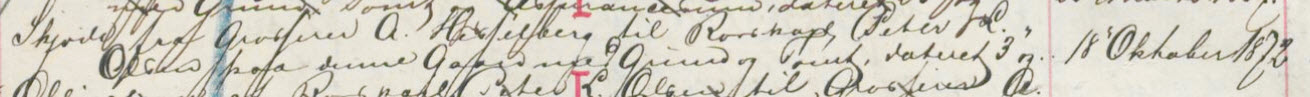 Grund Tomt Assurancesum, dateret
Skjøde fra Grosserer A. Hesselberg til Rorskarl Peter L.
Olsen paa denne Gaard med Grund og Tomt, dateret 3 og 18 Oktober 1872
Rorskarl Peter L. Olsen til Grosserer A.